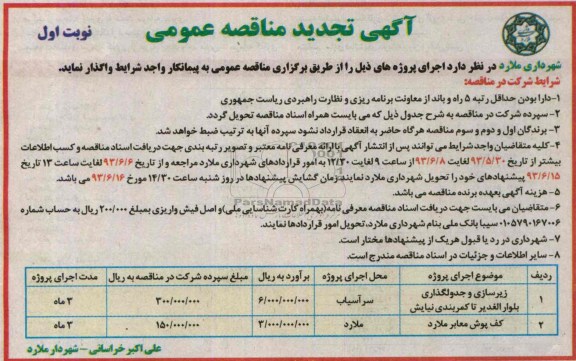 آگهی تجدید مناقصه عمومی
نوبت اول
شهرداری ملارد در نظر دارد اجرای پروژه های ذیل را از طریق برگزاری مناقصه عمومی به پیمانکار واجد شرایط واگذار نماید.
شرایط شرکت در مناقصه:
۱-دارا بودن حداقل رتبه ۵ راه و باند از معاونت برنامه ریزی و نظارت راهبردی ریاست جمهوری
۲- سپرده شرکت در مناقصه به شرح جدول ذیل که می بایست همراه اسناد مناقصه تحویل گردد.
۳- برندگان اول و دوم و سوم مناقصه هرگاه حاضر به انعقاد قرارداد نشود سپرده آنها به ترتیب ضبط خواهد شد.
۴- کلیه متقاضیان واجد شرایط می توانند پس از انتشار آگهی با ارائه معرفی نامه معتبر و تصویر رتبه بندی جهت دریافت اسناد مناقصه و کسب اطلاعات
بیشتر از تاریخ ۹۳/۵/۳۰ لغایت ۹۳/۶/۸ از ساعت ۹ لغایت ۱۲/۳۰ به امور قراردادهای شهرداری ملارد مراجعه و از تاریخ ۹۳/۶/۶ لغایت ساعت ۱۳ تاریخ
۹۳/۶/۱۵ پیشنهادهای خود را تحویل شهرداری ملارد نمایند زمان گشایش پیشنهادها در روز شنبه ساعت ۱۴/۳۰ مورخ ۹۳/۶/۱۶ می باشد.
۵- هزینه آگهی بعهده برنده مناقصه می باشد.
۶- متقاضیان می بایست جهت دریافت اسناد مناقصه معرفی نامه(بهمراه کارت شناسایی ملی)و اصل فیش واریزی بمبلغ ۲۰۰/۰۰۰ ریال به حساب شماره
۰۱۰۵۷۹۰۱۶۷۰۰۶ سیبا بانک ملی بنام شهرداری ملارد، تحویل امور قراردادها نمایند.
۷- شهرداری در رد یا قبول هریک از پیشنهادها مختار است.
۸- سایر اطلاعات و جزئیات در اسناد مناقصه مندرج است.
ردیف موضوع اجرای پروژه محل اجرای پروژه برآورد به ریال مبلغ سپرده شرکت در مناقصه به ریال مدت اجرای پروژه
۱ زیرسازی و جدولگذاری بلوار الغدیر تا کمربندی نیایش سرآسیاب ۶/۰۰۰/۰۰۰/۰۰۰ ۳۰۰/۰۰۰/۰۰۰ ۳ ماه
۲ کف پوش معابر ملارد ملارد ۳/۰۰۰/۰۰۰/۰۰۰ ۱۵۰/۰۰۰/۰۰۰ ۳ ماه
علی اکبر خراسانی - شهردار ملارد
ParsNamadData